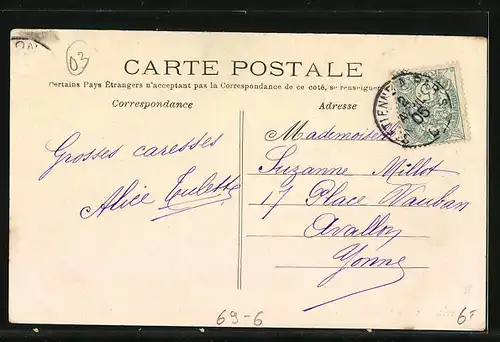 03
CARTE POSTALE
Certains Pays Étrangers n'acceptant pas la Correspondance de ce coté, se renseigner
Correspondance
Adresse
Grosses caresses
Alice
Mademoiselle
Suzanne Millot
17 Place Vauban
Avallon
Yonne
69-6
6F